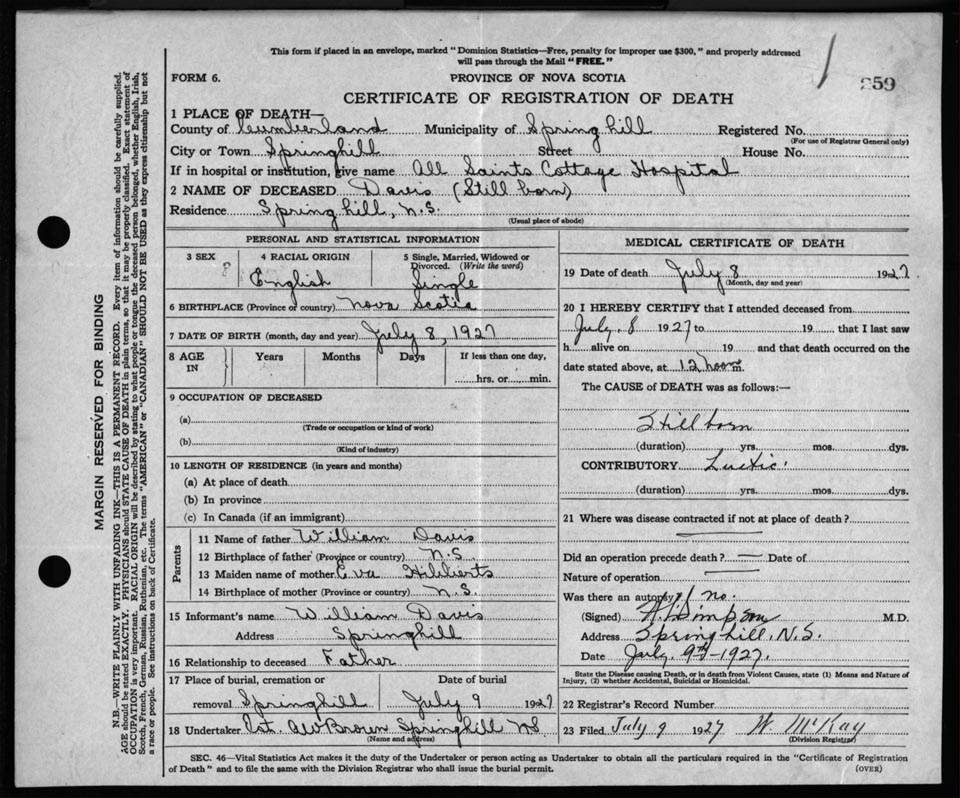 This form if placed in an envelope, marked "Dominion Statistics—Free, penalty for improper use $300," and properly addressed
will pass through the Mail "FREE."
FORM 6. PROVINCE OF NOVA SCOTIA 259
CERTIFICATE OF REGISTRATION OF DEATH
1 PLACE OF DEATH—
County of Cumberland Municipality of Spring hill Registered No.
(For use of Registrar General only)
City or Town Springhill Street House No.
If in hospital or institution, give name All Saints Cottage Hospital
2 NAME OF DECEASED Davis (Still born)
Residence Spring hill, N.S.
(Usual place of abode)
PERSONAL AND STATISTICAL INFORMATION
3 SEX 4 RACIAL ORIGIN 5 Single, Married, Widowed or
Divorced. (Write the word)
English Single
6 BIRTHPLACE (Province or country) Nova Scotia
7 DATE OF BIRTH (month, day and year) July 8, 1927
8 AGE IN Years Months Days If less than one day,
hrs. or min.
9 OCCUPATION OF DECEASED
(a)
(Trade or occupation or kind of work)
(b)
(Kind of industry)
10 LENGTH OF RESIDENCE (in years and months)
(a) At place of death
(b) In province
(c) In Canada (if an immigrant)
Parents
11 Name of father William Davis
12 Birthplace of father (Province or country) N.S.
13 Maiden name of mother Eva
14 Birthplace of mother (Province or country) N.S.
15 Informant's name William Davis
Address Springhill
16 Relationship to deceased Father
17 Place of burial, cremation or Date of burial
removal Springhill July 9 1927
18 Undertaker Est. AW Brown Springhill NS
(Name and address)
MEDICAL CERTIFICATE OF DEATH
19 Date of death July 8 1927
(Month, day and year)
20 I HEREBY CERTIFY that I attended deceased from
July. 8 1927 to 19 that I last saw
h alive on 19 and that death occurred on the
date stated above, at 12 noon m.
The CAUSE of DEATH was as follows:—
Still born
(duration) yrs. mos. dys.
CONTRIBUTORY Luetic
(duration) yrs. mos. dys.
21 Where was disease contracted if not at place of death?
Did an operation precede death? — Date of
Nature of operation
Was there an autopsy? no.
(Signed) Simpson M.D.
Address Springhill, N.S.
Date July. 9th—1927.
State the Disease causing Death, or in death from Violent Causes, state (1) Means and Nature of
Injury, (2) whether Accidental, Suicidal or Homicidal.
22 Registrar's Record Number
23 Filed July 9 1927 W. McKay
(Division Registrar)
SEC. 46—Vital Statistics Act makes it the duty of the Undertaker or person acting as Undertaker to obtain all the particulars required in the "Certificate of Registration
of Death" and to file the same with the Division Registrar who shall issue the burial permit.
(OVER)
MARGIN RESERVED FOR BINDING
N.B.—WRITE PLAINLY WITH UNFADING INK—THIS IS A PERMANENT RECORD. Every item of information should be carefully supplied.
AGE should be stated EXACTLY. PHYSICIANS should STATE CAUSE OF DEATH in plain terms, so that it may be properly classified. Exact statement of
OCCUPATION is very important. RACIAL ORIGIN will be described by stating to what people or tongue the deceased person belonged, whether English, Irish,
Scotch, French, German, Russian, Ruthenian, etc. The terms "AMERICAN" or "CANADIAN" SHOULD NOT BE USED as they express citizenship but not
a race or people. See instructions on back of Certificate.